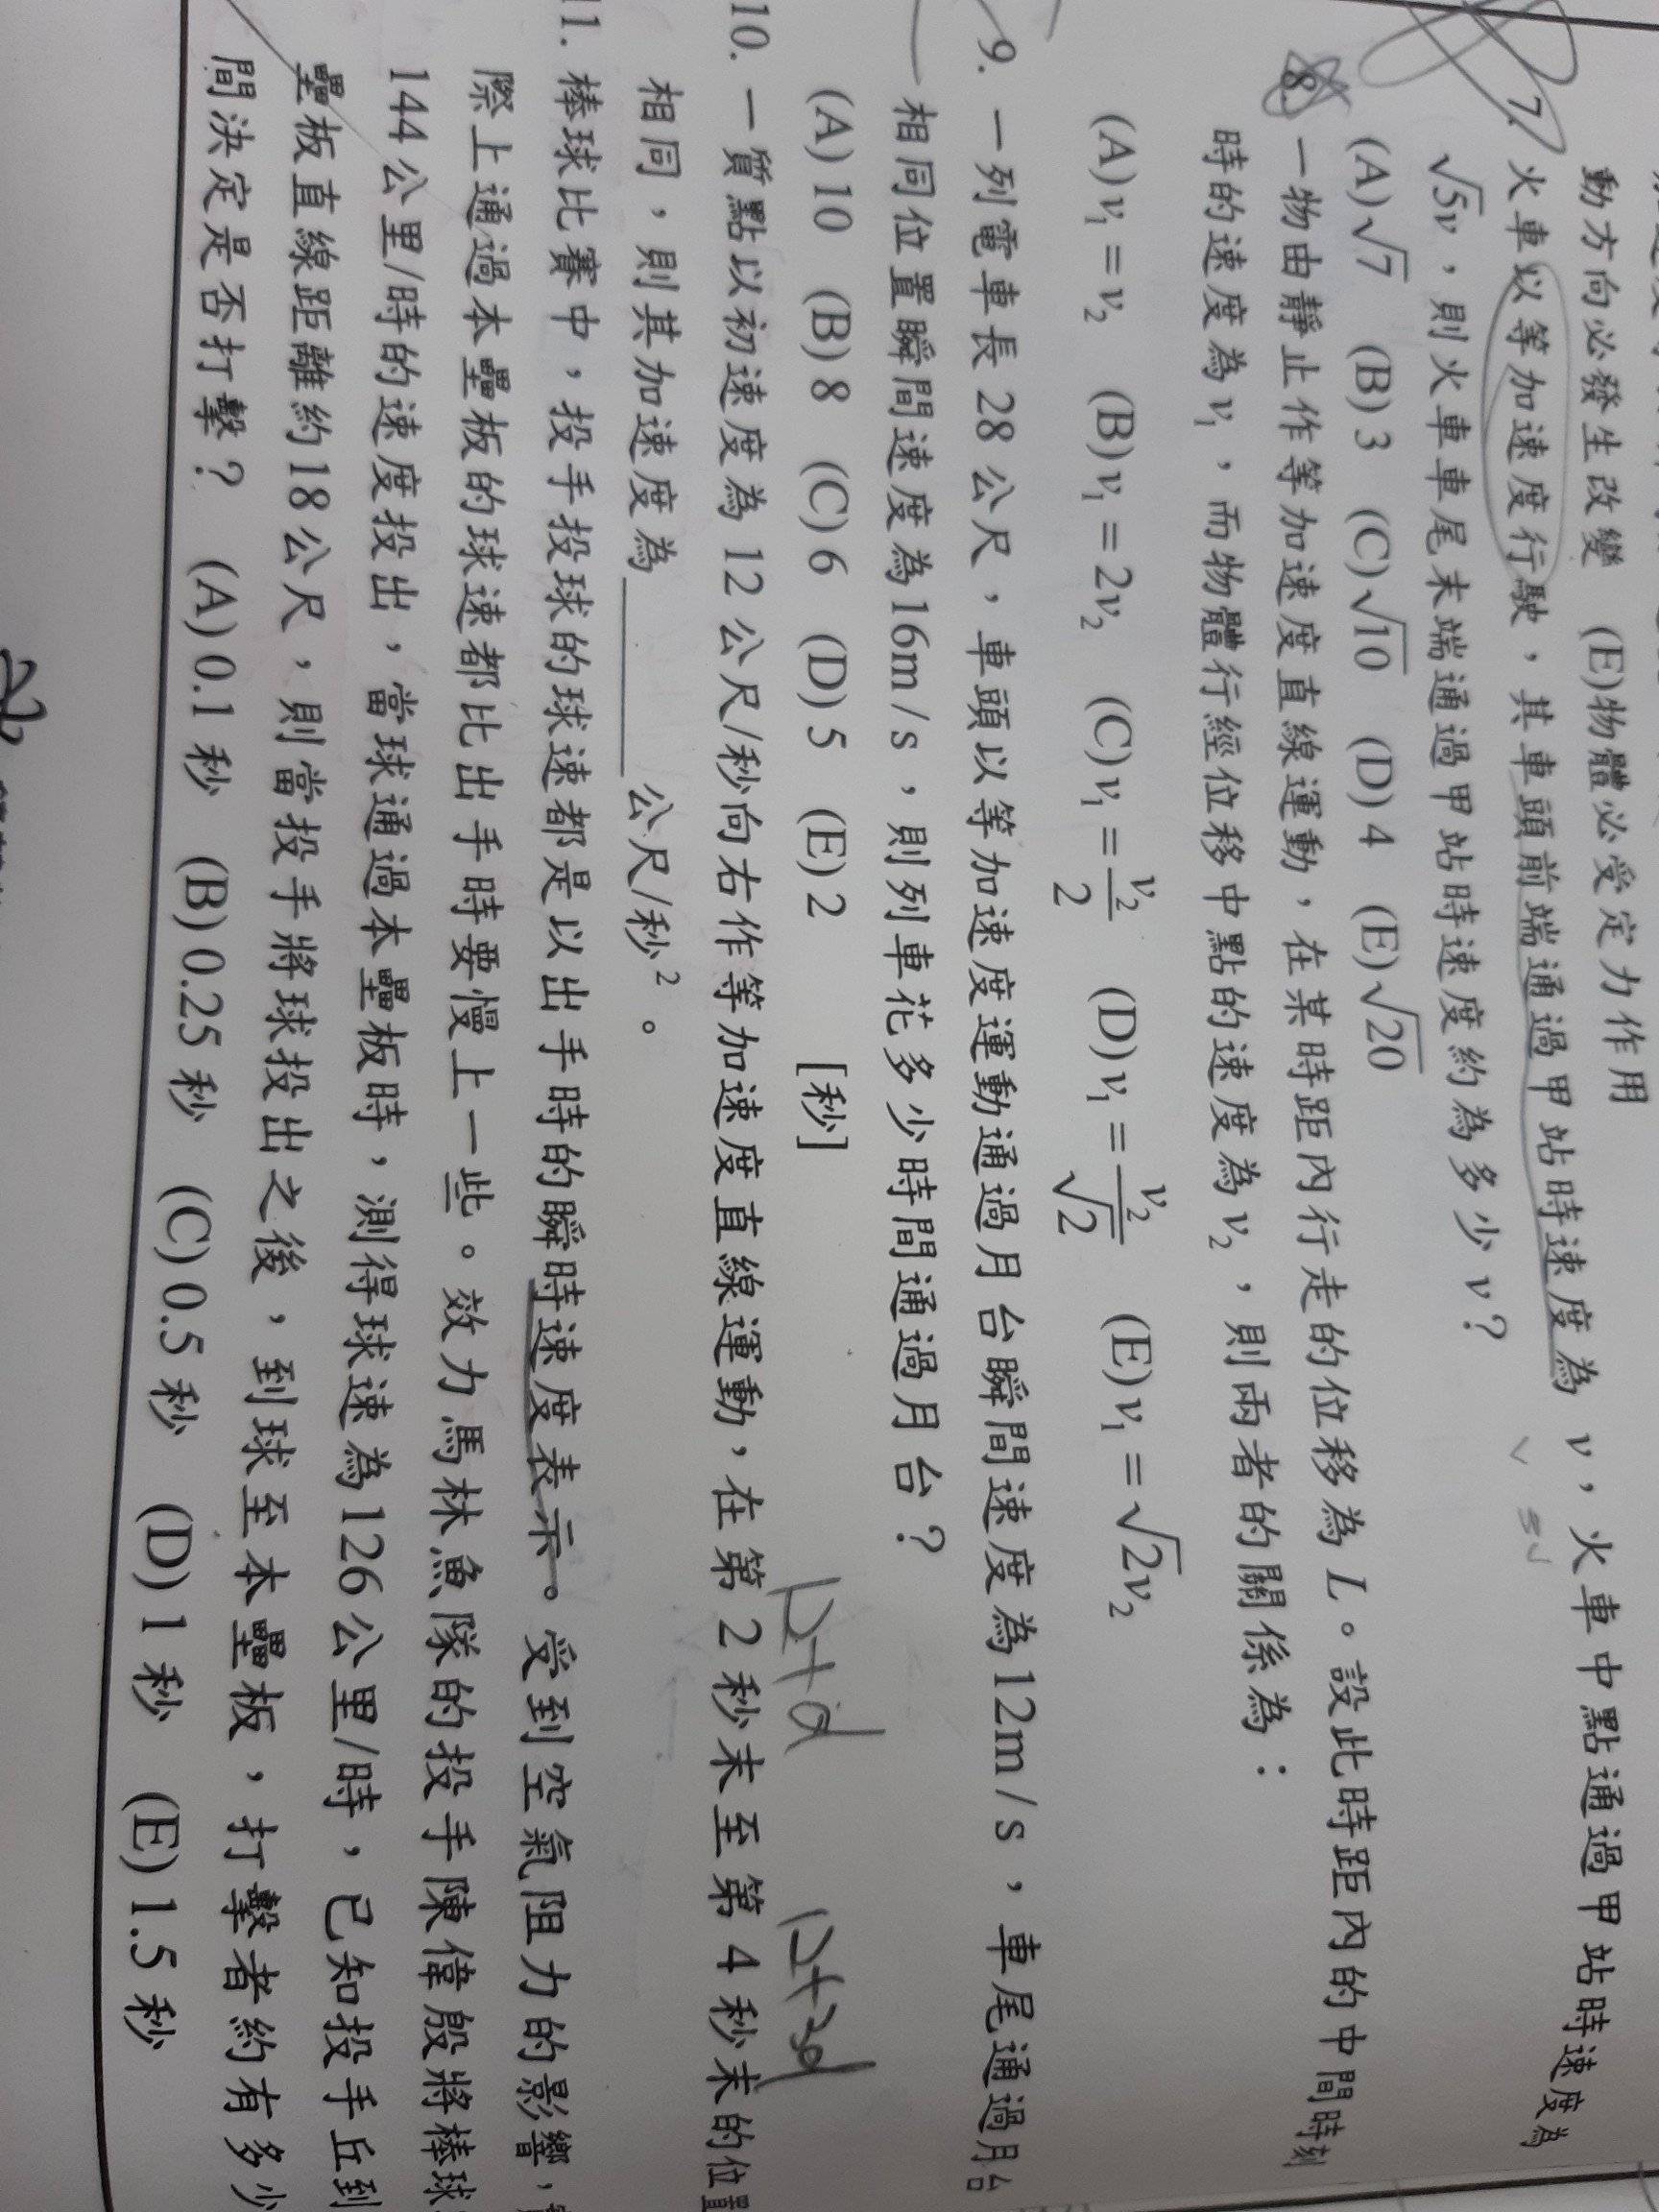 動方向必發生改變 (E)物體必受定力作用
7. 火車以等加速度行駛，其車頭前端通過甲站時速度為 v，火車中點通過甲站時速度為
√5v，則火車車尾末端通過甲站時速度約為多少 v？
v 5v
(A)√7 (B)3 (C)√10 (D)4 (E)√20
8. 一物由靜止作等加速度直線運動，在某時距內行走的位移為 L。設此時距內的中間時刻
時的速度為 v₁，而物體行經位移中點的速度為 v₂，則兩者的關係為：
(A) v₁ = v₂ (B) v₁ = 2v₂ (C) v₁ = v₂/2 (D) v₁ = v₂/√2 (E) v₁ = √2v₂
9. 一列電車長 28 公尺，車頭以等加速度運動通過月台瞬間速度為12m/s，車尾通過月台
相同位置瞬間速度為16m/s，則列車花多少時間通過月台？
(A) 10 (B) 8 (C) 6 (D) 5 (E) 2 [秒]
10. 一質點以初速度為 12 公尺/秒向右作等加速度直線運動，在第 2 秒末至第 4 秒末的位置
相同，則其加速度為______公尺/秒²。
11. 棒球比賽中，投手投球的球速都是以出手時的瞬時速度表示。受到空氣阻力的影響，
際上通過本壘板的球速都比出手時要慢上一些。效力馬林魚隊的投手陳偉殷將棒球
144 公里/時的速度投出，當球通過本壘板時，測得球速為126公里/時，已知投手丘到
壘板直線距離約18公尺，則當投手將球投出之後，到球至本壘板，打擊者約有多少
間決定是否打擊？ (A) 0.1 秒 (B) 0.25 秒 (C) 0.5 秒 (D) 1 秒 (E) 1.5 秒